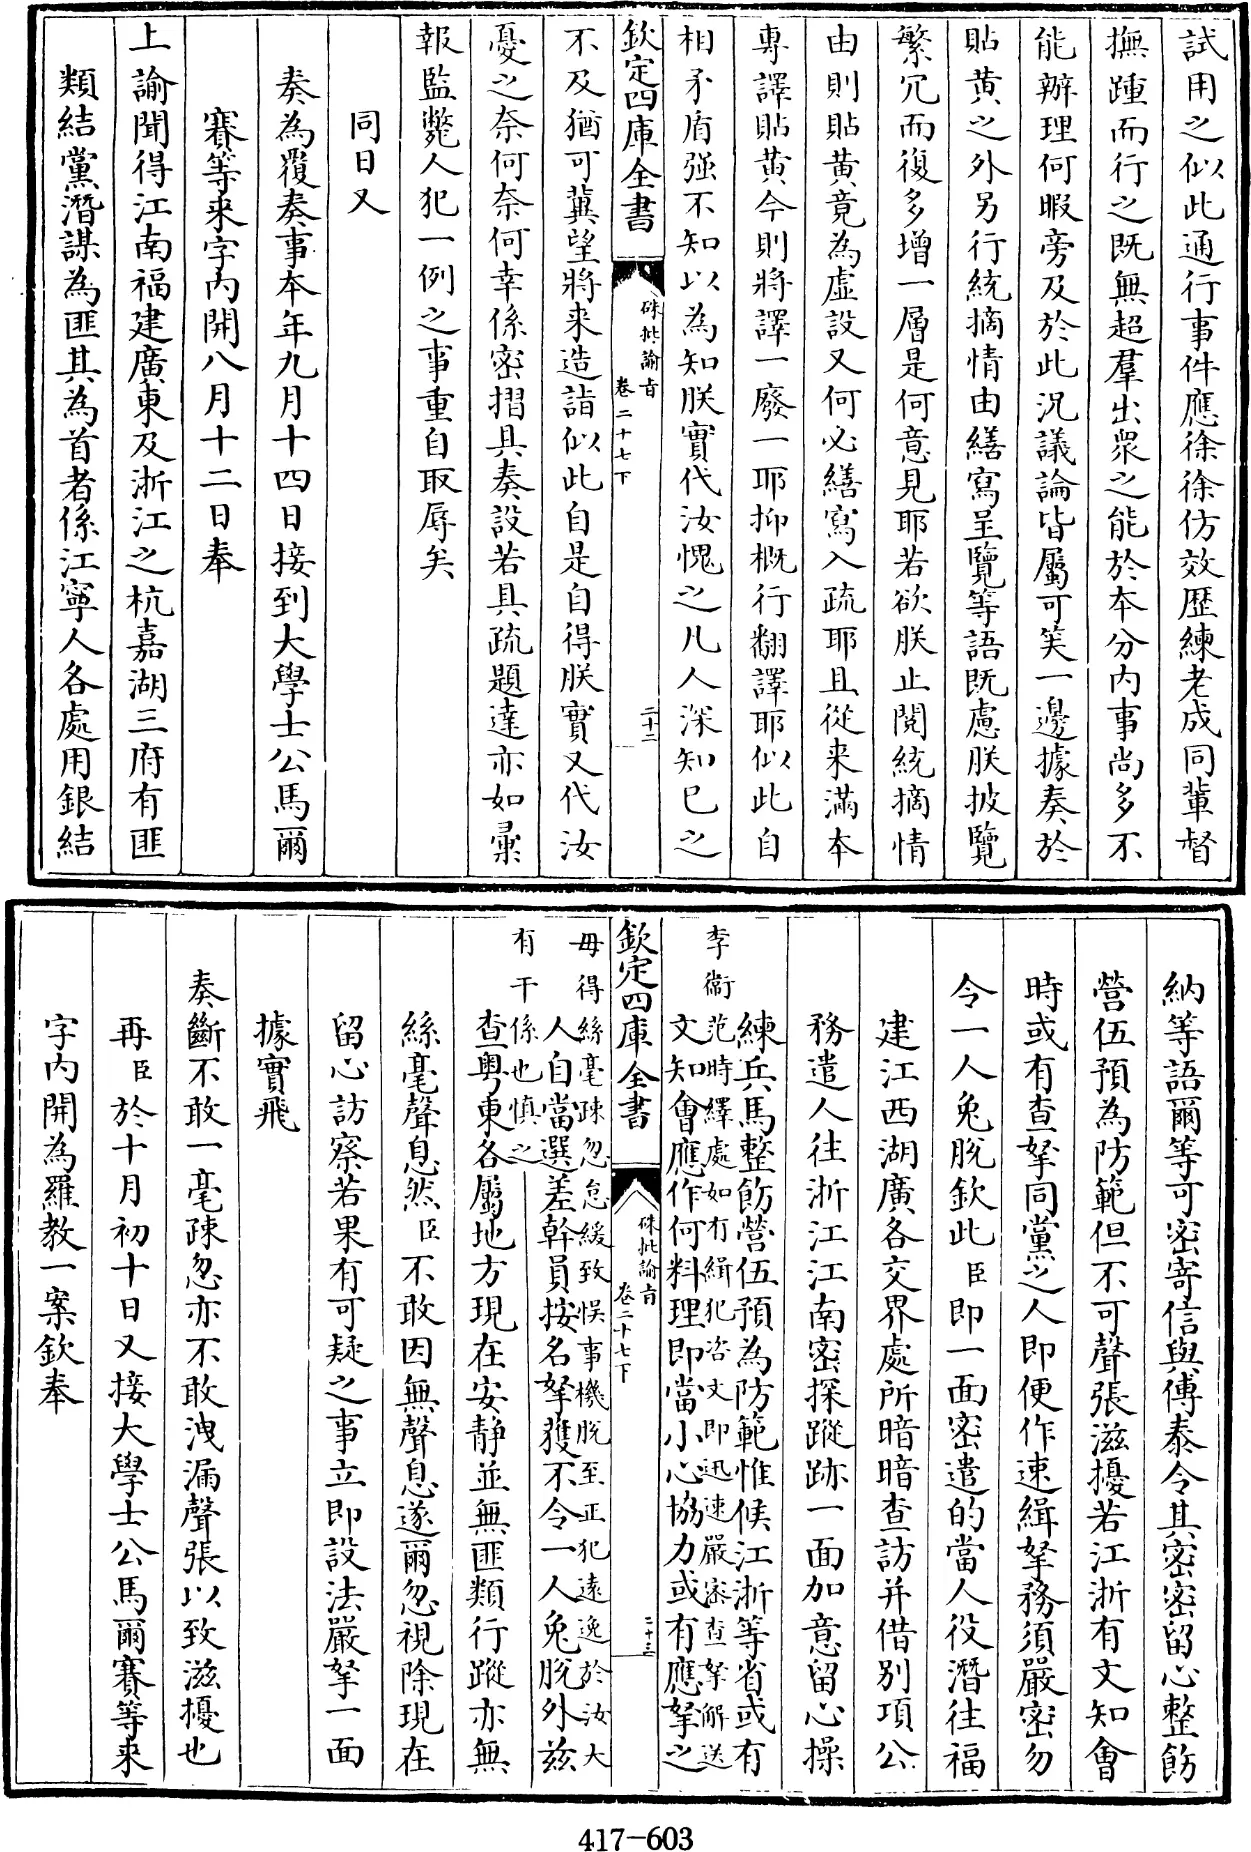 試用之似此通行事件應徐徐仿效歴練老成同輩督
撫踵而行之既無超羣出衆之能於本分内事尚多不
能辦理何暇旁及於此况議論皆屬可笑一邊據奏於
貼黄之外另行統摘情由繕寫呈覽等語既慮朕披覽
繁冗而復多增一層是何意見耶若欲朕止閱統摘情
由則貼黄竟為虚設又何必繕寫入疏耶且從来滿本
專譯貼黄今則將譯一廢一耶抑概行翻譯耶似此自
相矛盾强不知以為知朕實代汝愧之凡人深知已之
欽定四庫全書
硃批諭旨
卷二十七下
二十二
不及猶可冀望將来造詣似此自是自得朕實又代汝
憂之奈何奈何幸係密摺具奏設若具疏題達亦如彚
報監斃人犯一例之事重自取辱矣
同日又
奏為覆奏事本年九月十四日接到大學士公馬爾
賽等来字内開八月十二日奉
上諭聞得江南福建廣東及浙江之杭嘉湖三府有匪
類結黨潛謀為匪其為首者係江寧人各處用銀結
納等語爾等可密寄信與傅泰令其密密留心整飭
營伍預為防範但不可聲張滋擾若江浙有文知會
時或有查拏同黨之人即便作速緝拏務須嚴密勿
令一人兔脱欽此臣即一面密遣的當人役潛往福
建江西湖廣各交界處所暗暗查訪并借别項公
務遣人往浙江江南密探蹤跡一面加意留心操
練兵馬整飭營伍預為防範惟候江浙等省或有
李衞范時繹處如有緝犯咨文即迅速嚴密查拏解送
文知會應作何料理即當小心協力或有應拏之
欽定四庫全書
硃批諭旨
卷二十七下
二十三
毋得絲毫疎忽怠緩致悮事機脱至正犯遠逸於汝大
人自當選差幹員按名拏獲不令一人兔脱外兹
有干係也慎之
查粤東各屬地方現在安静並無匪類行蹤亦無
絲毫聲息然臣不敢因無聲息遂爾忽視除現在
留心訪察若果有可疑之事立即設法嚴拏一面
據實飛
奏斷不敢一毫疎忽亦不敢洩漏聲張以致滋擾也
再臣於十月初十日又接大學士公馬爾賽等来
字内開為羅教一案欽奉
417-603